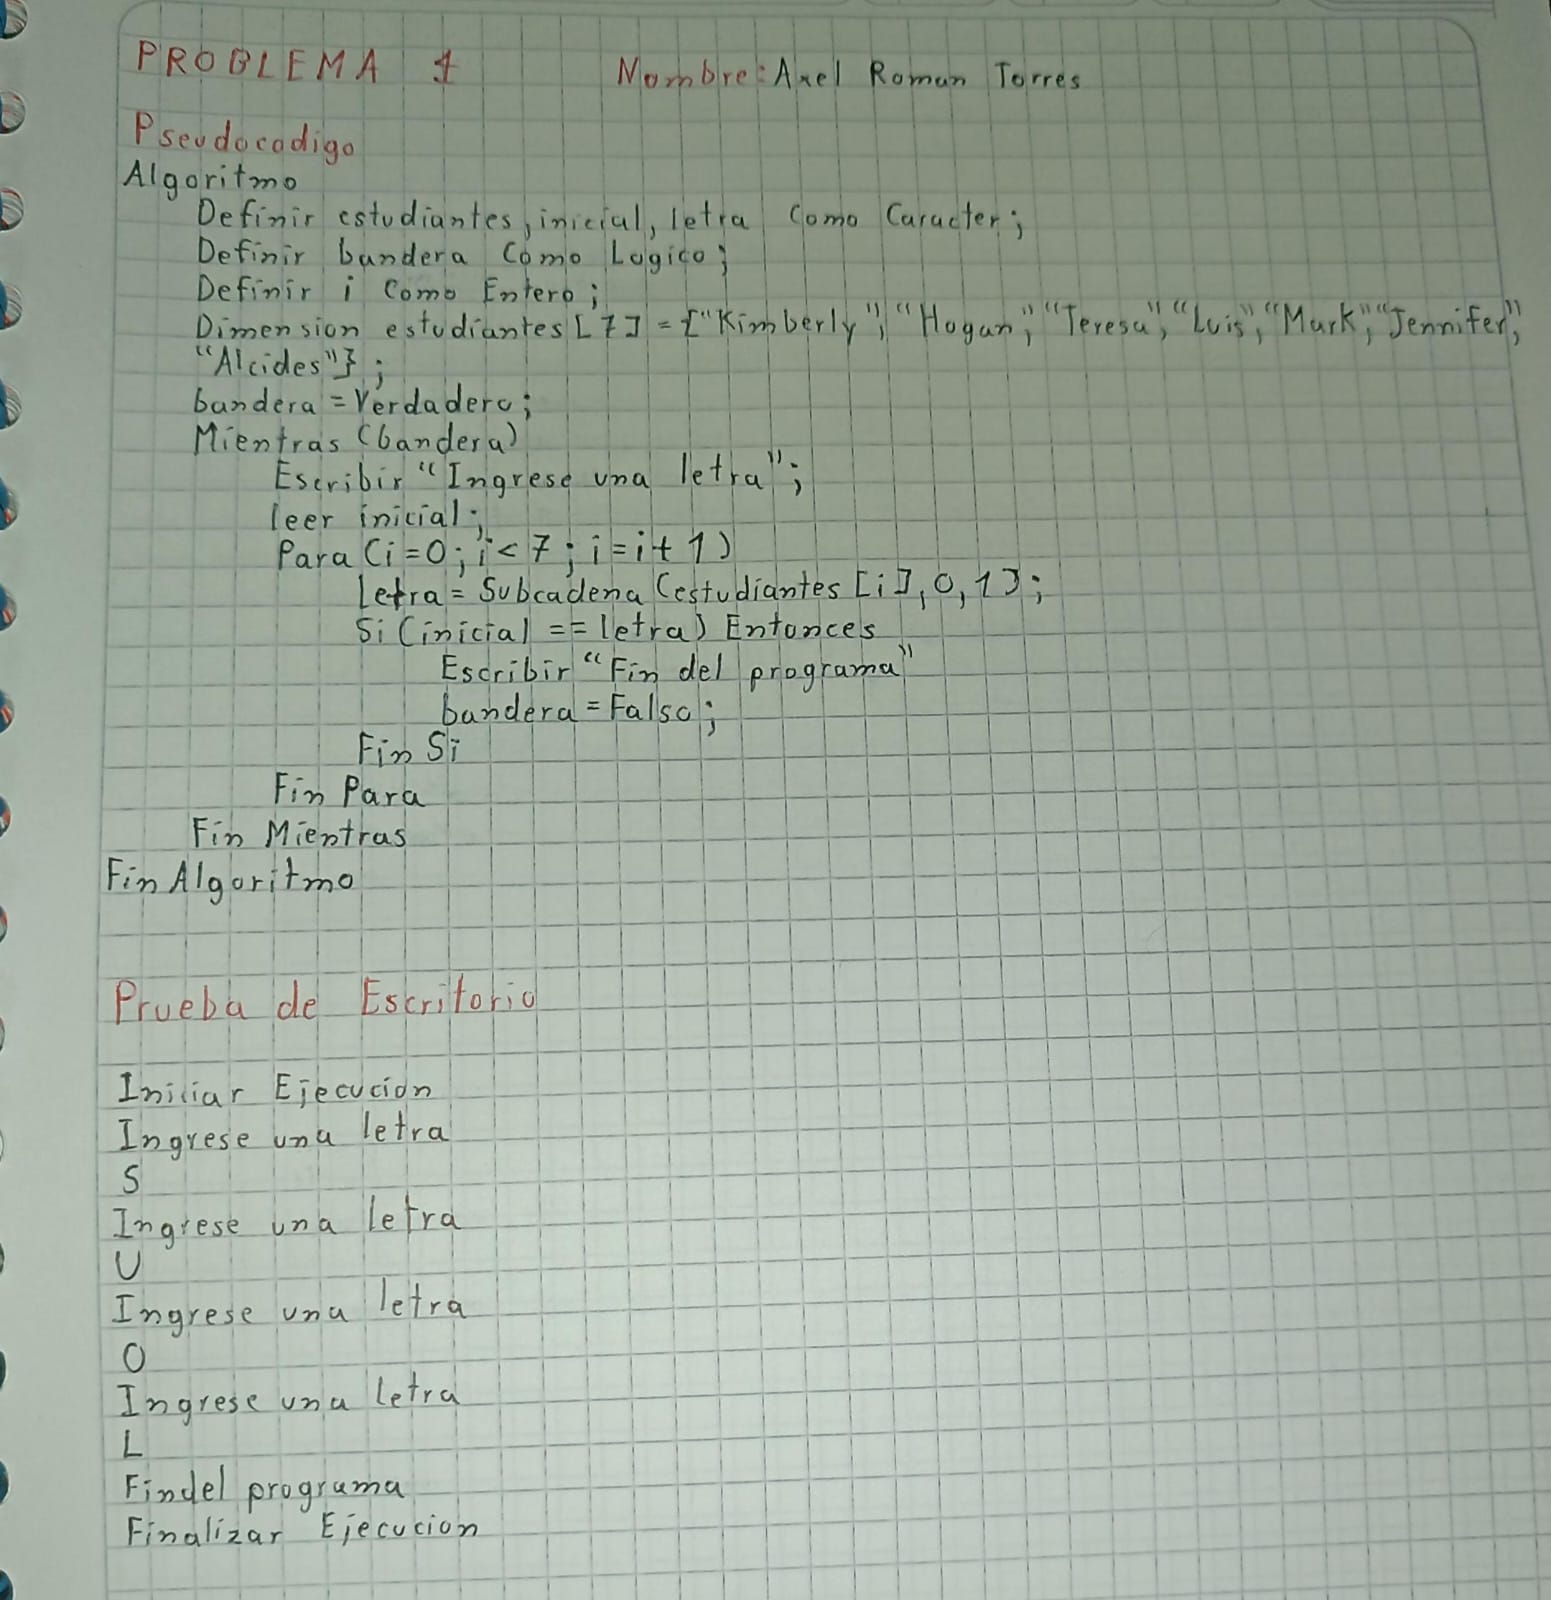 PROBLEMA 1 Nombre: Axel Roman Torres
Pseudocodigo
Algoritmo
Definir estudiantes, inicial, letra Como Caracter;
Definir bandera Como Logico;
Definir i Como Entero;
Dimension estudiantes [7] = {"Kimberly", "Hogan", "Teresa", "Luis", "Mark", "Jennifer",
"Alcides"};
bandera = Verdadero;
Mientras (bandera)
Escribir "Ingrese una letra";
leer inicial;
Para (i=0; i<7; i=i+1)
Letra = Subcadena (estudiantes [i], 0, 1);
Si (inicial == letra) Entonces
Escribir "Fin del programa"
bandera = Falso;
Fin Si
Fin Para
Fin Mientras
Fin Algoritmo
Prueba de Escritorio
Iniciar Ejecucion
Ingrese una letra
S
Ingrese una letra
U
Ingrese una letra
O
Ingrese una letra
L
Fin del programa
Finalizar Ejecucion